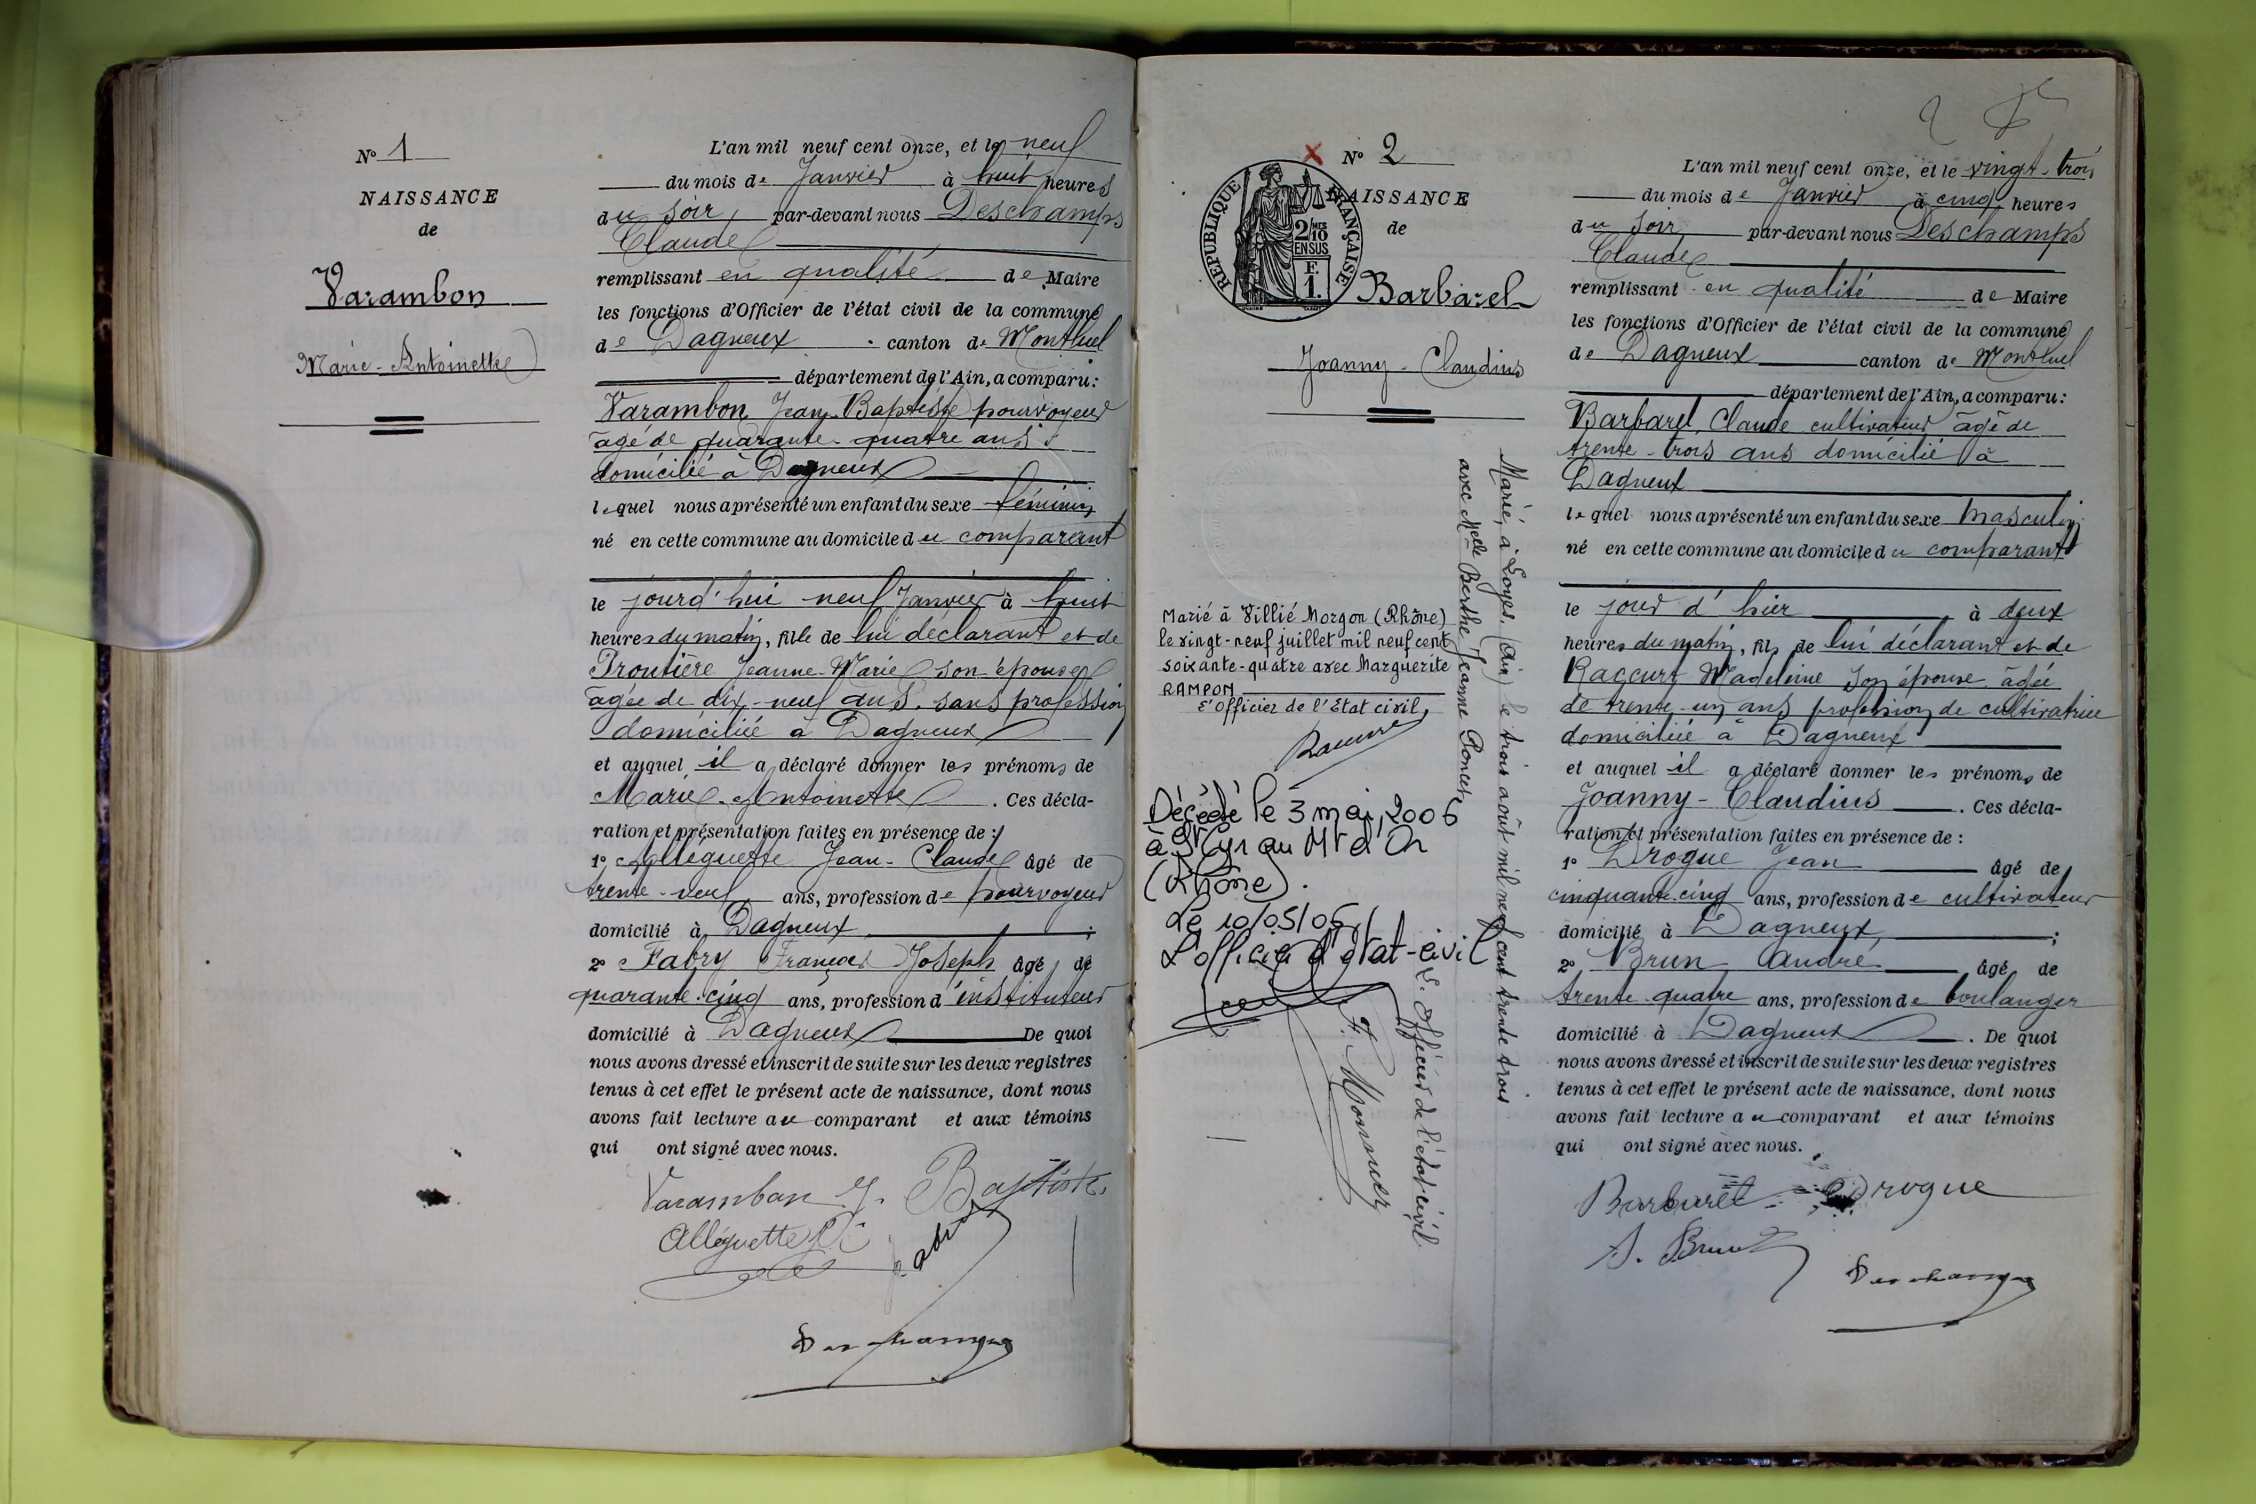 N° 1
NAISSANCE
de
Varambon
Marie-Antoinette
L'an mil neuf cent onze, et le neuf
du mois de Janvier à huit heures
du soir par-devant nous Deschamps
Claude
remplissant en qualité de Maire
les fonctions d'Officier de l'état civil de la commune
de Dagneux canton de Montluel
département de l'Ain, a comparu :
Varambon Jean-Baptiste pourvoyeur
âgé de quarante-quatre ans
domicilié à Dagneux
lequel nous a présenté un enfant du sexe féminin
né en cette commune au domicile du comparant
le jourd'hui neuf Janvier à huit
heures du matin, fille de lui déclarant et de
Troutière Jeanne-Marie son épouse
âgée de dix-neuf ans, sans profession
domiciliée à Dagneux
et auquel il a déclaré donner les prénoms de
Marie-Antoinette. Ces décla-
ration et présentation faites en présence de :
1° Alléguette Jean-Claude âgé de
trente-neuf ans, profession de pourvoyeur
domicilié à Dagneux ;
2° Fabry François Joseph âgé de
quarante-cinq ans, profession d'instituteur
domicilié à Dagneux De quoi
nous avons dressé et inscrit de suite sur les deux registres
tenus à cet effet le présent acte de naissance, dont nous
avons fait lecture au comparant et aux témoins
qui ont signé avec nous.
Varambon J. Baptiste
Alléguette J C
Fabry
Deschamps
2
N° 2
NAISSANCE
de
REPUBLIQUE FRANÇAISE
2/10 MES
EN SUS
F.
1.
Barbarel
Joanny-Claudius
Marié, à Loyes, (Ain) le trois août mil neuf cent trente trois
avec Melle Berthe Jeanne Poncet
L'Officier de l'état civil
F. Monnier
Marié à Villié Morgon (Rhône)
le vingt-neuf juillet mil neuf cent
soixante-quatre avec Marguerite
RAMPON
L'Officier de l'Etat civil,
Décédé le 3 mai 2006
à St Cyr au Mt d'Or
(Rhône).
Le 10/05/06
L'officier d'état-civil
L'an mil neuf cent onze, et le vingt-trois
du mois de Janvier à cinq heures
du soir par-devant nous Deschamps
Claude
remplissant en qualité de Maire
les fonctions d'Officier de l'état civil de la commune
de Dagneux canton de Montluel
département de l'Ain, a comparu :
Barbarel, Claude cultivateur âgé de
trente-trois ans domicilié à
Dagneux
lequel nous a présenté un enfant du sexe masculin
né en cette commune au domicile du comparant
le jour d'hier à deux
heures du matin, fils de lui déclarant et de
Raccurt Madeleine son épouse âgée
de trente-un ans profession de cultivatrice
domiciliée à Dagneux
et auquel il a déclaré donner les prénoms de
Joanny-Claudius. Ces décla-
ration et présentation faites en présence de :
1° Drogue Jean âgé de
cinquante-cinq ans, profession de cultivateur
domicilié à Dagneux, ;
2° Brun André âgé de
trente-quatre ans, profession de boulanger
domicilié à Dagneux. De quoi
nous avons dressé et inscrit de suite sur les deux registres
tenus à cet effet le présent acte de naissance, dont nous
avons fait lecture au comparant et aux témoins
qui ont signé avec nous.
Barbarel Drogue
A. Brun
Deschamps